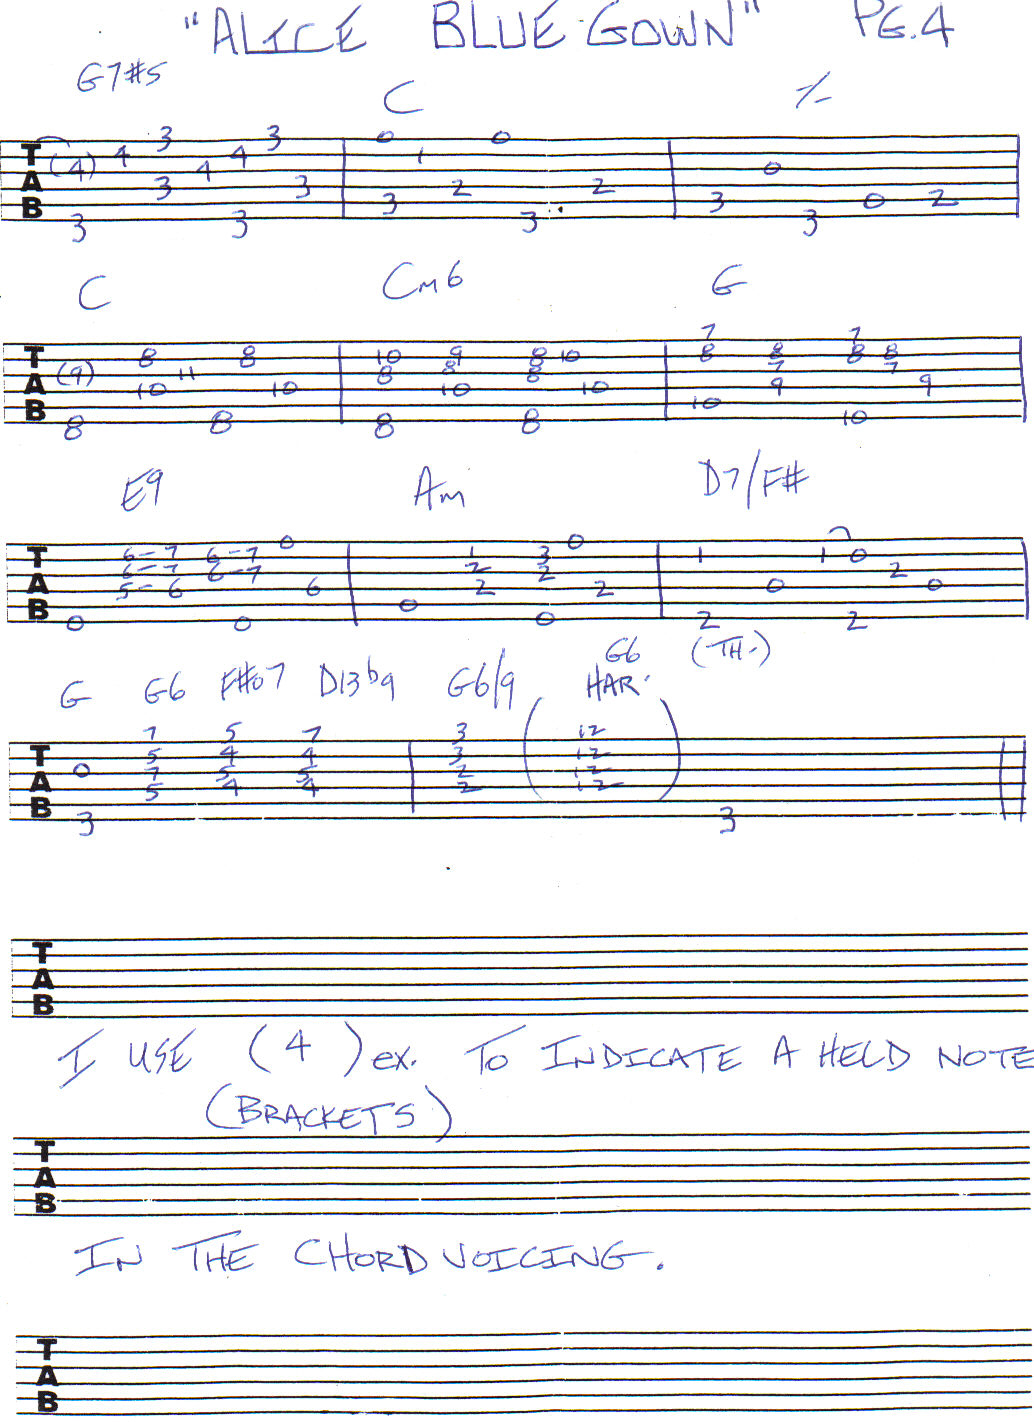 "ALICE BLUE GOWN" PG.4
G7#5 C ٪
TAB (4) 4 3 4 4 3 3 3 3 3 0 1 0 3 2 3 2 0 3 3 0 2
C Cm6 G
TAB (9) 8 11 8 10 10 8 8 10 9 8 10 8 8 8 10 10 8 8 7 8 8 7 9 7 8 8 7 9 10 10
E9 Am D7/F#
TAB 6-7 6-7 0 6-7 6-7 5-6 6 0 0 1 3 0 2 2 2 2 0 0 1 1 0 2 0 0 2 2
G6 (TH.)
G G6 F#o7 D13b9 G6/9 HAR.
TAB 0 3 7 5 7 5 5 4 5 4 7 4 5 4 3 3 2 2 (12 12 12 12) 3
TAB
I USE (4) ex. TO INDICATE A HELD NOTE
(BRACKETS)
TAB
IN THE CHORD VOICING.
TAB